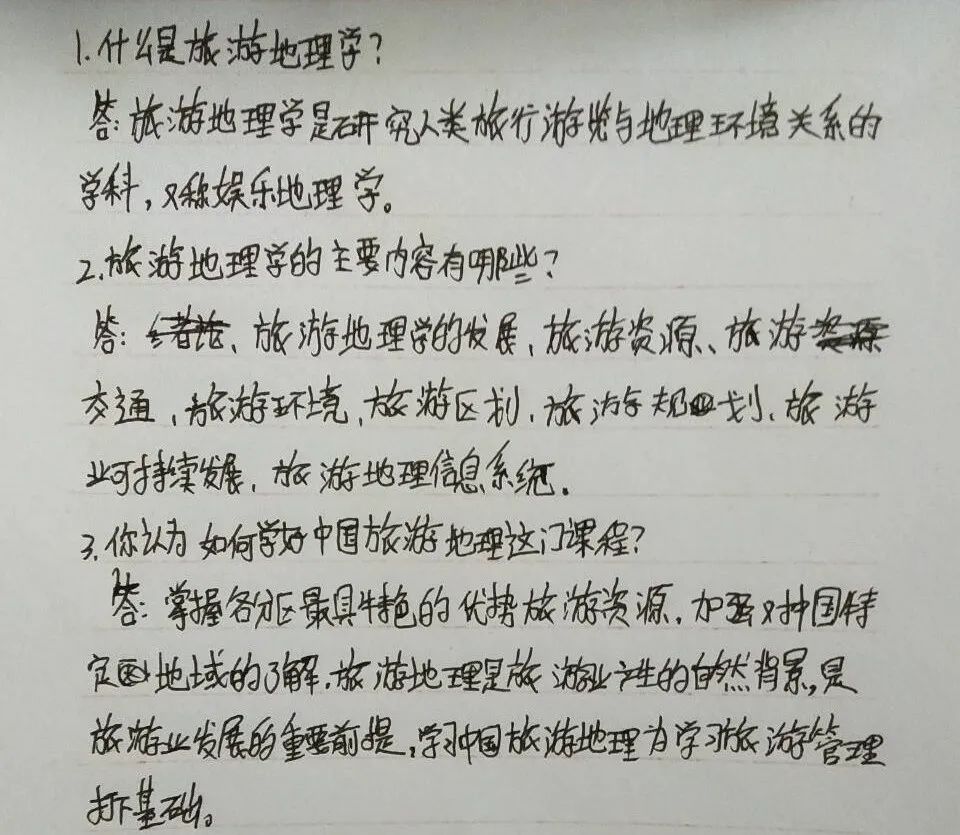 1.什么是旅游地理学?
答:旅游地理学是研究人类旅行游览与地理环境关系的
学科,又称娱乐地理学。
2.旅游地理学的主要内容有哪些?
答:、旅游地理学的发展、旅游资源、旅游
交通、旅游环境、旅游区划、旅游规划、旅游
业可持续发展、旅游地理信息系统。
3.你认为如何学好中国旅游地理这门课程?
答:掌握各分区最具特色的优势旅游资源,加强对中国特
定地域的了解,旅游地理是旅游业产生的自然背景,是
旅游业发展的重要前提,学习中国旅游地理为学习旅游管理
打下基础。